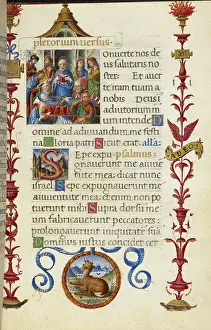 pletorium versus.
Onuerte nos de
us salutaris no
ster: Et auer
te iram tuam a
nobis Deus i
adiutorium
um intende D
omine ad adiuuandum me festina
Gloria patri Sicut erat. alla:
Sepe expu psalmus:
gnauerunt me a iuuen
tute mea: dicat nunc
israel Sepe expugnauerunt me a
iuuentute mea: etenim non po
tuerunt mihi Supra dorsum me
um fabricauerunt peccatores:
prolongauerunt iniquitatem suam
Dominus iustus concidet cer